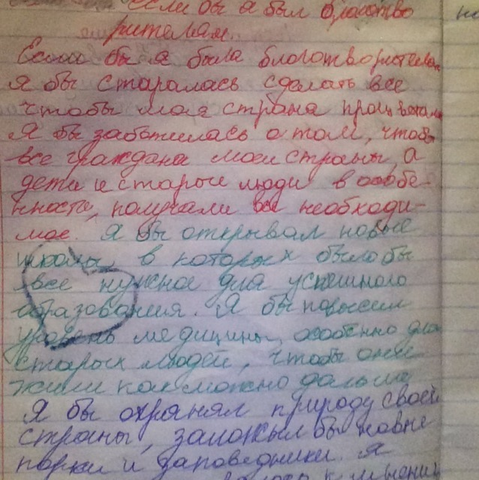 если бы я был благотво
рителем.
Если бы я была благотворителем
я бы старалась сделать все
чтобы моя страна процветала
Я бы заботилась о том, чтобы
все граждане моей страны, а
дети и старые люди в особе-
нности, получали все необходи-
мое. Я бы открывал новые
школы, в которых было бы
все нужное для успешного
образования. Я бы повысил
уровень медицины, особенно для
старых людей, чтобы они
жили как можно дальше
Я бы охранял природу своей
страны, заложил бы новые
парки и заповедники. Я
к мнению